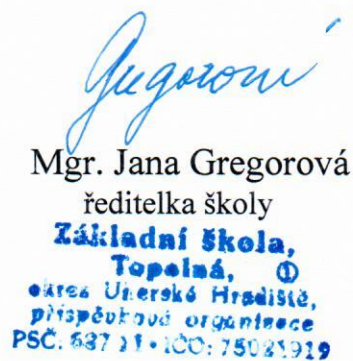 Gregorová
Mgr. Jana Gregorová
ředitelka školy
Základní škola,
Topolná, ①
okres Uherské Hradiště,
příspěvková organizace
PSČ: 687 11 • IČO: 75021919